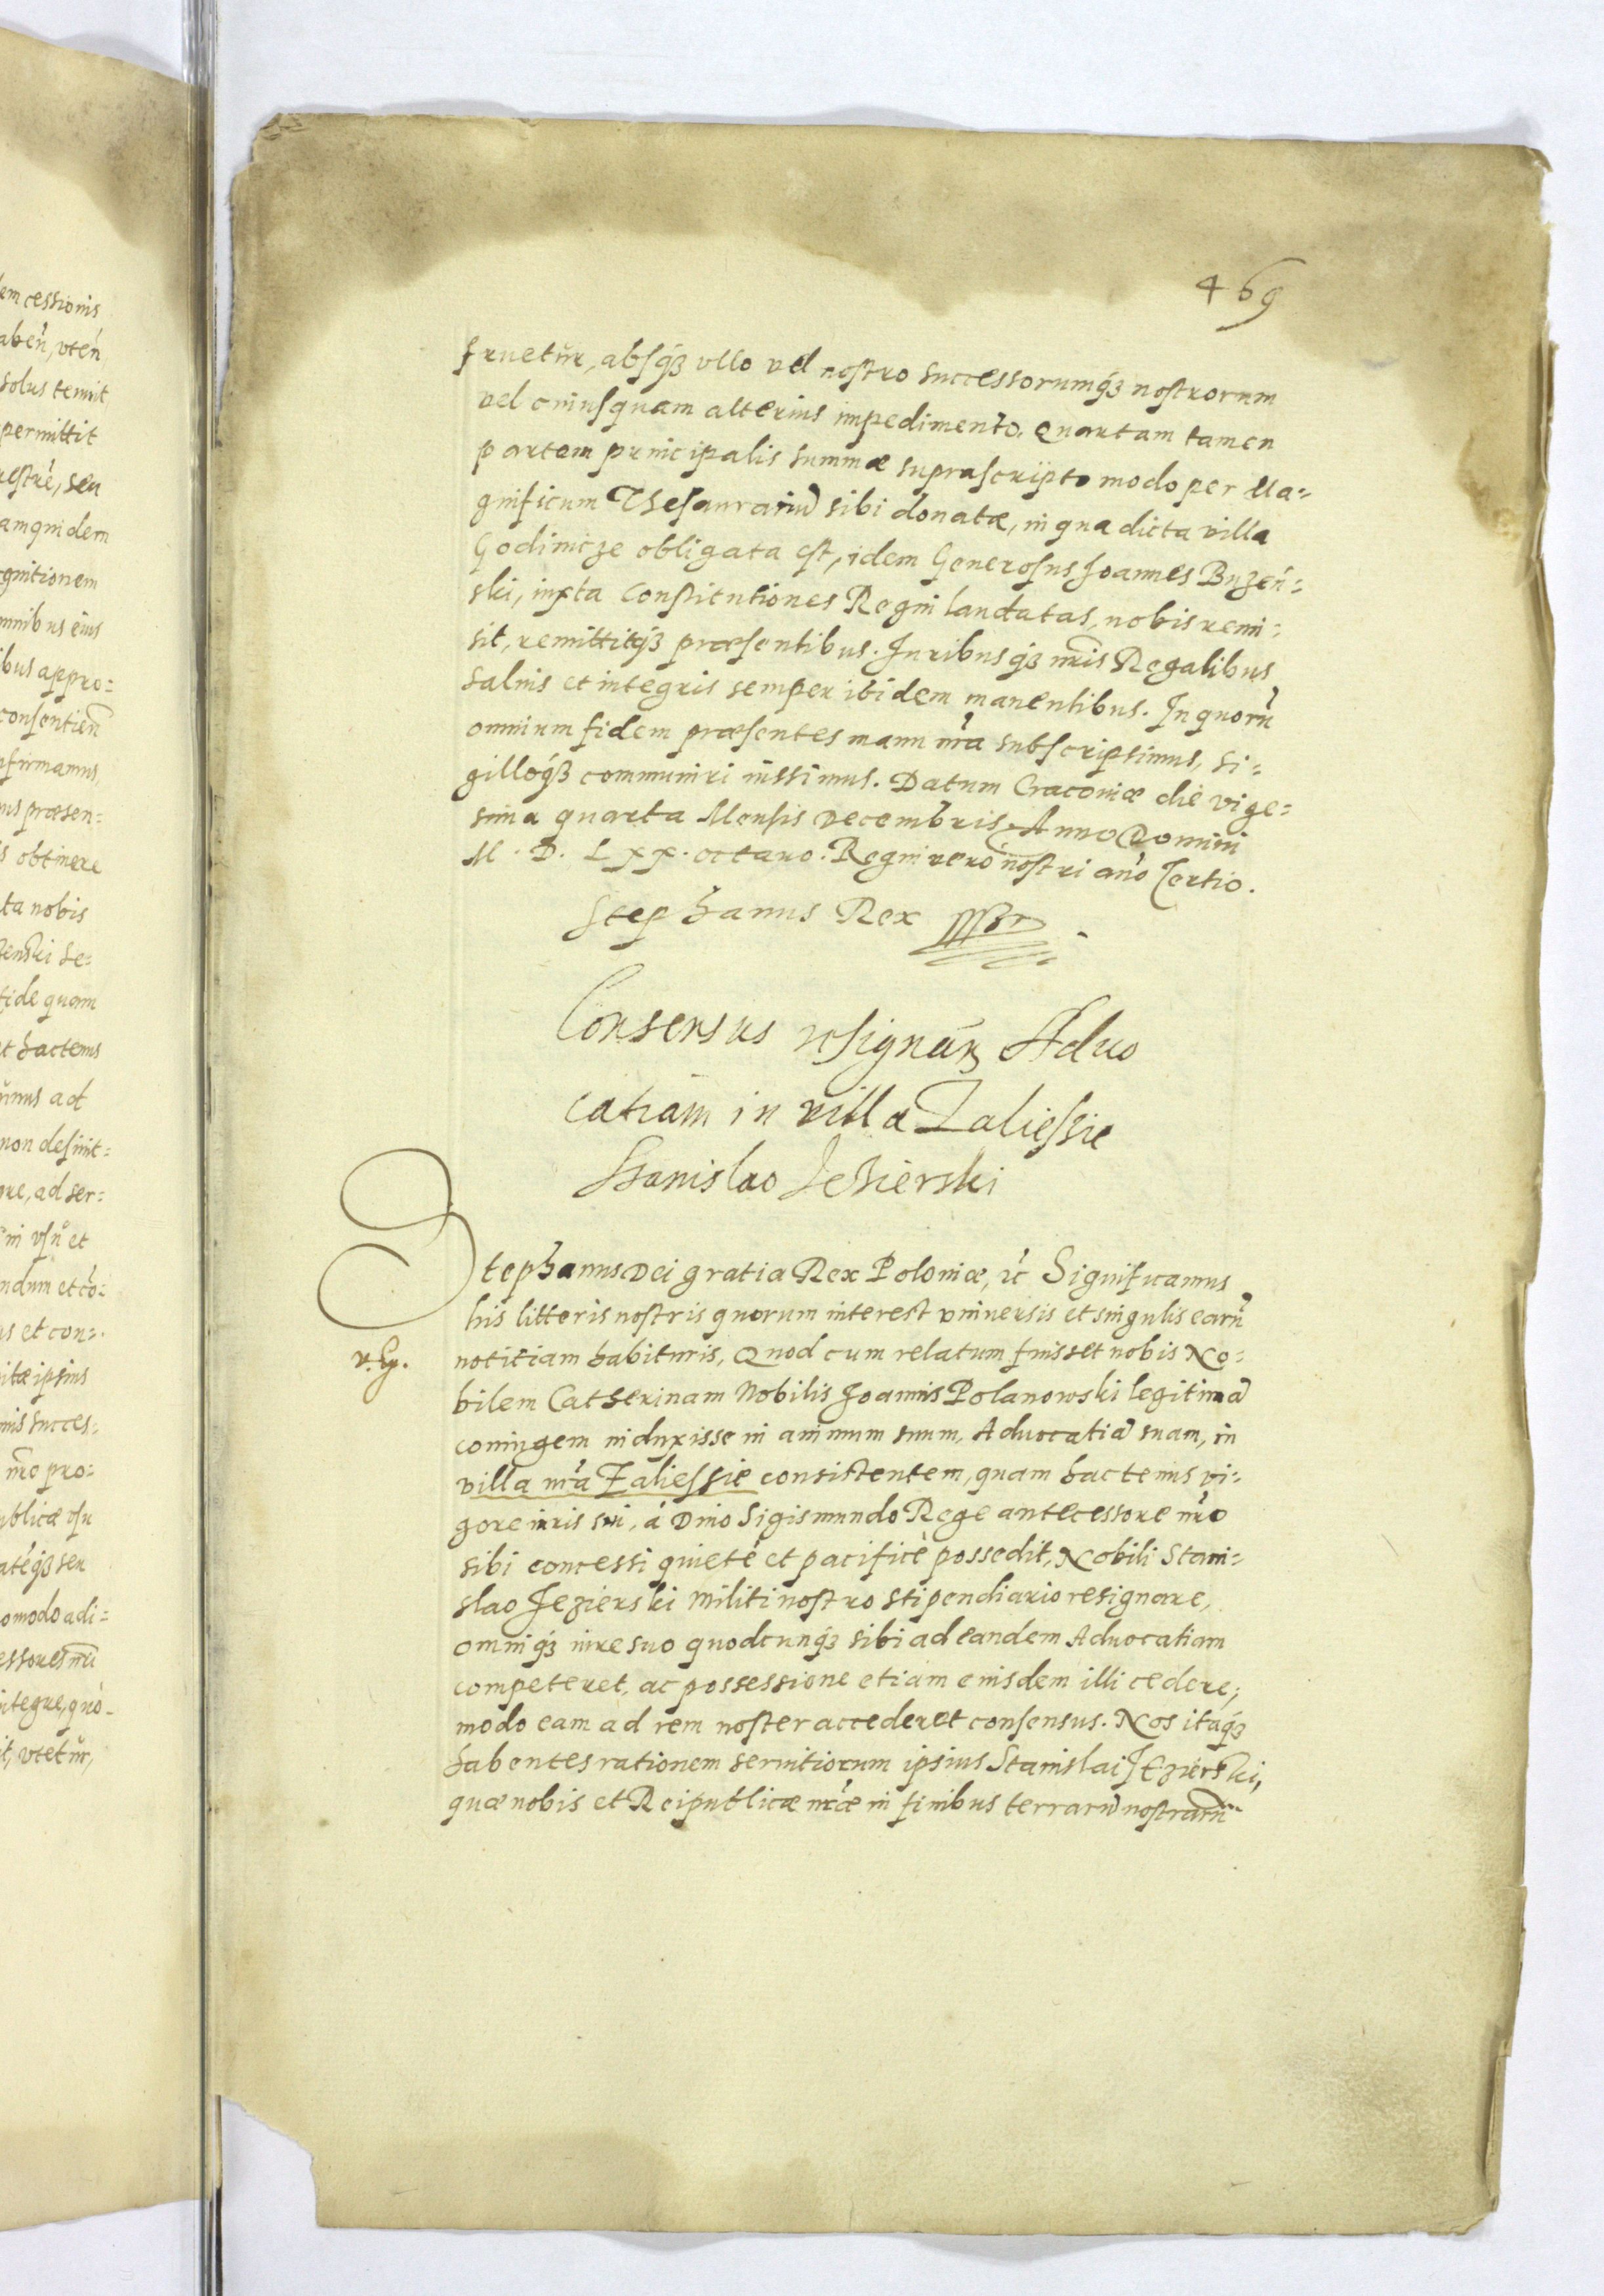 469
fruetur, absq3 vllo vel nostro successorumq3 nostrorum
vel cuiusquam alterius impedimento. Quartam tamen
partem principalis summæ suprascripto modo per Ma=
gnificum Thesaurariũ sibi donatæ, in qua dicta villa
Godinicze obligata est, idem Generosus Joannes Buzeń=
ski, iuxta Constitutiones Regni laudatas, nobis remi=
sit, remittitq3 præsentibus. Juribusq3 nr̃is Regalibus
saluis et integris semper ibidem manentibus. In quorũ
omnium fidem præsentes manu nr̃a subscripsimus, si=
gilloq3 communiri iussimus. Datum Cracouiæ die vige=
sima quarta Mensis Decembris, Anno Domini
M. D. Lxx. octauo. Regni vero nostri ańo Tertio.
Stephanus Rex
Consensus resignań Aduo
catiam in villa Zaliessie
Stanislao Jezierski
Stephanus Dei gratia Rex Poloniæ, ec̃ Significamus
his litteris nostris quorum interest vniuersis et singulis earũ
v. Ey.
notitiam habituris, Quod cum relatum fuisset nobis No=
bilem Catherinam Nobilis Joannis Polanowski legitimã
coniugem induxisse in animum suum, Aduocatiã suam, in
villa nr̃a Zaliessie consistentem, quam hactenus vi=
gore iuris sui, á Diuo Sigismundo Rege antecessore nr̃o
sibi concessi quietè et pacificè possedit, Nobili Stani=
slao Jezierski Militi nostro stipendiario resignare,
omniq3 iure suo quodcunq3 sibi ad eandem Aduocatiam
competeret, ac possessione etiam eiusdem illi cedere;
modo eam ad rem noster accederet consensus. Nos itaq3
habentes rationem seruitiorum ipsius Stanislai Jezierski,
quæ nobis et Reipublicæ nr̃æ in finibus terrarũ nostrarũ